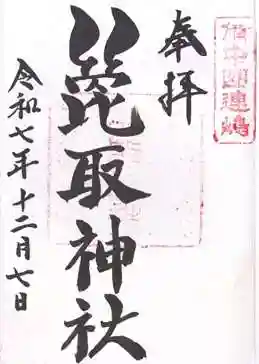 備中國連嶋
奉拝
箆取神社
令和七年十二月七日